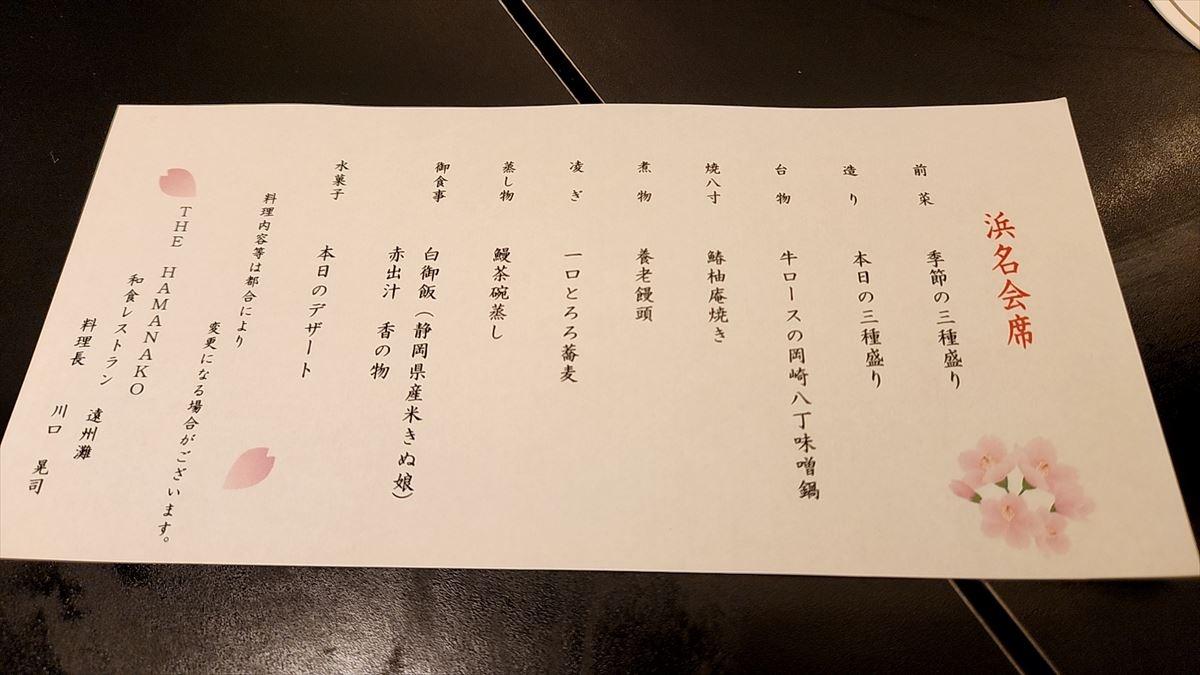 浜名会席
前菜 季節の三種盛り
造り 本日の三種盛り
台物 牛ロースの岡崎八丁味噌鍋
焼八寸 鰆柚庵焼き
煮物 養老饅頭
凌ぎ 一口とろろ蕎麦
蒸し物 鰻茶碗蒸し
御食事 白御飯（静岡県産米きぬ娘）
赤出汁 香の物
水菓子 本日のデザート
料理内容等は都合により
変更になる場合がございます。
THE HAMANAKO
和食レストラン 遠州灘
料理長 川口 晃司